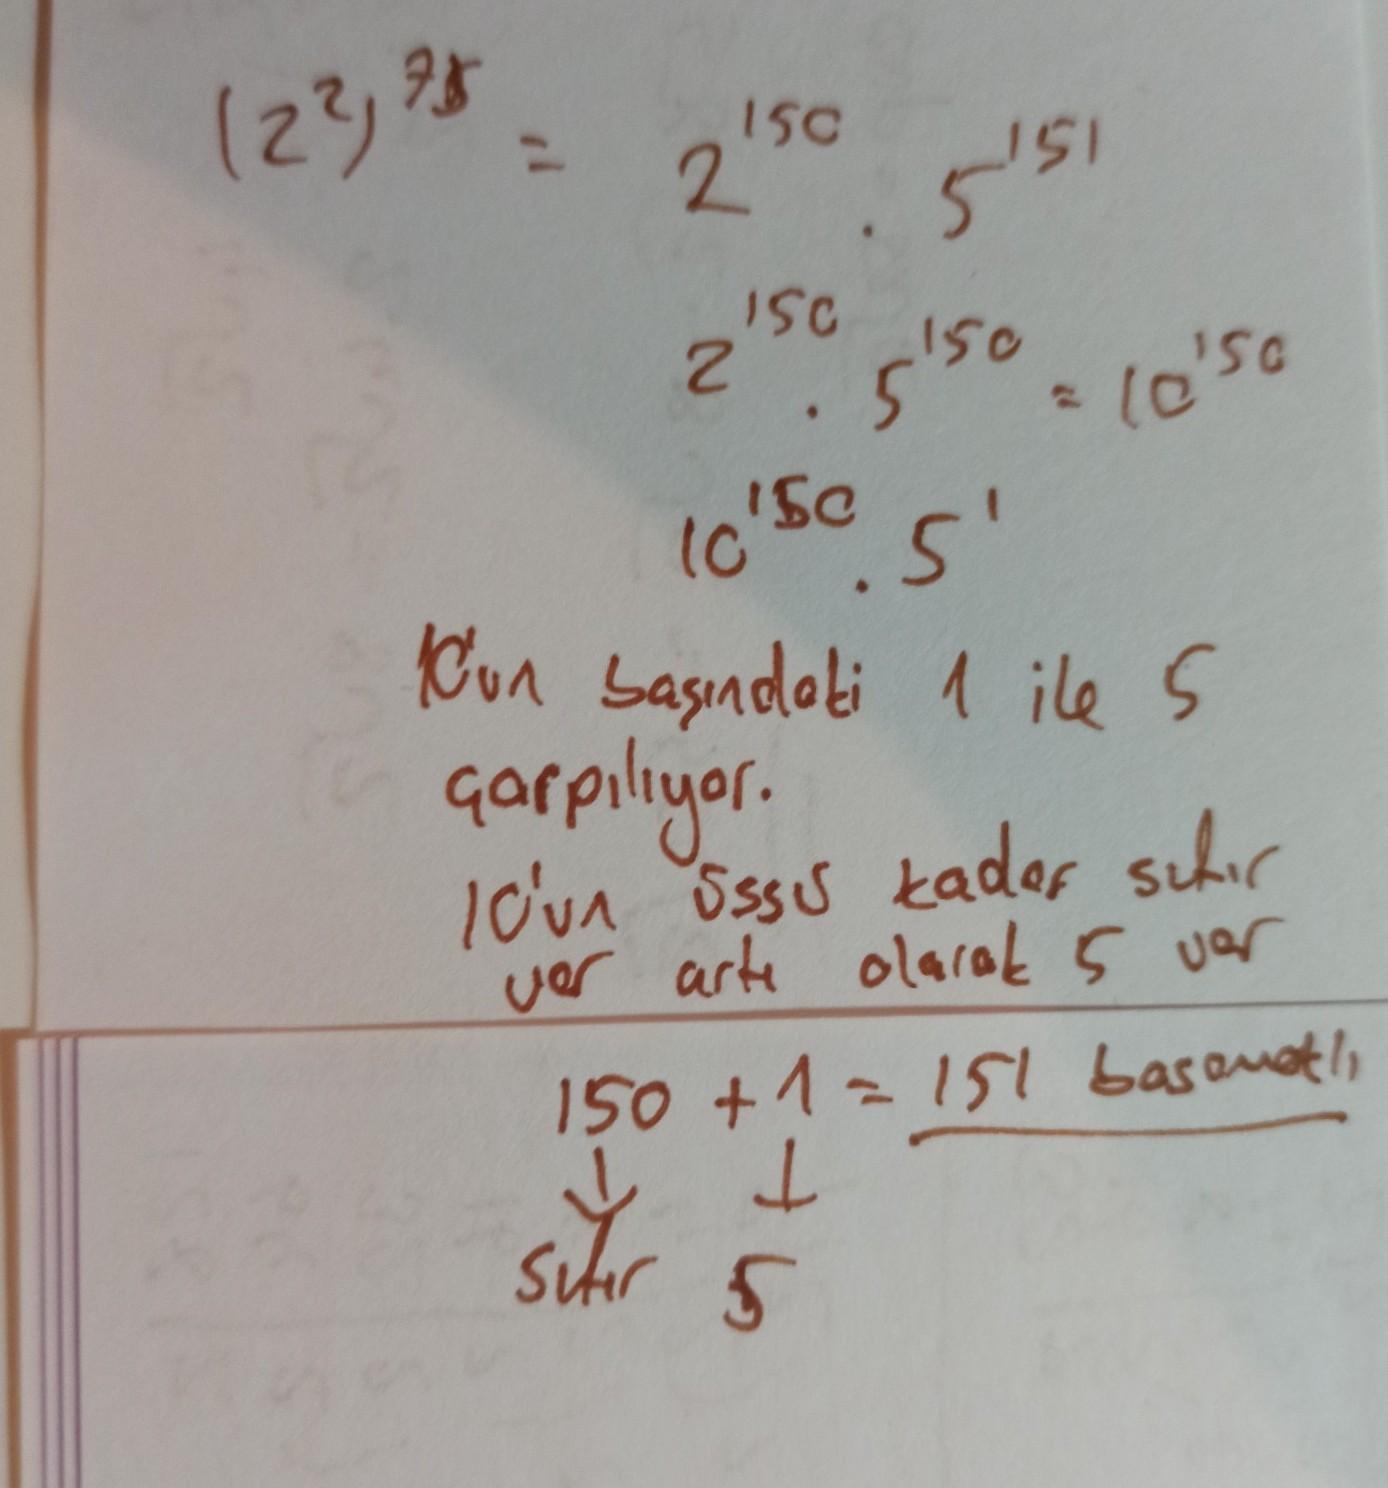 (2²)⁷⁵ = 2¹⁵⁰ . 5¹⁵¹
2¹⁵⁰ . 5¹⁵⁰ = 10¹⁵⁰
10¹⁵⁰ . 5¹
10'un başındaki 1 ile 5
çarpılıyor.
10'un üssü kadar sıfır
var artı olarak 5 var
150 + 1 = 151 basamaklı
sıfır 5